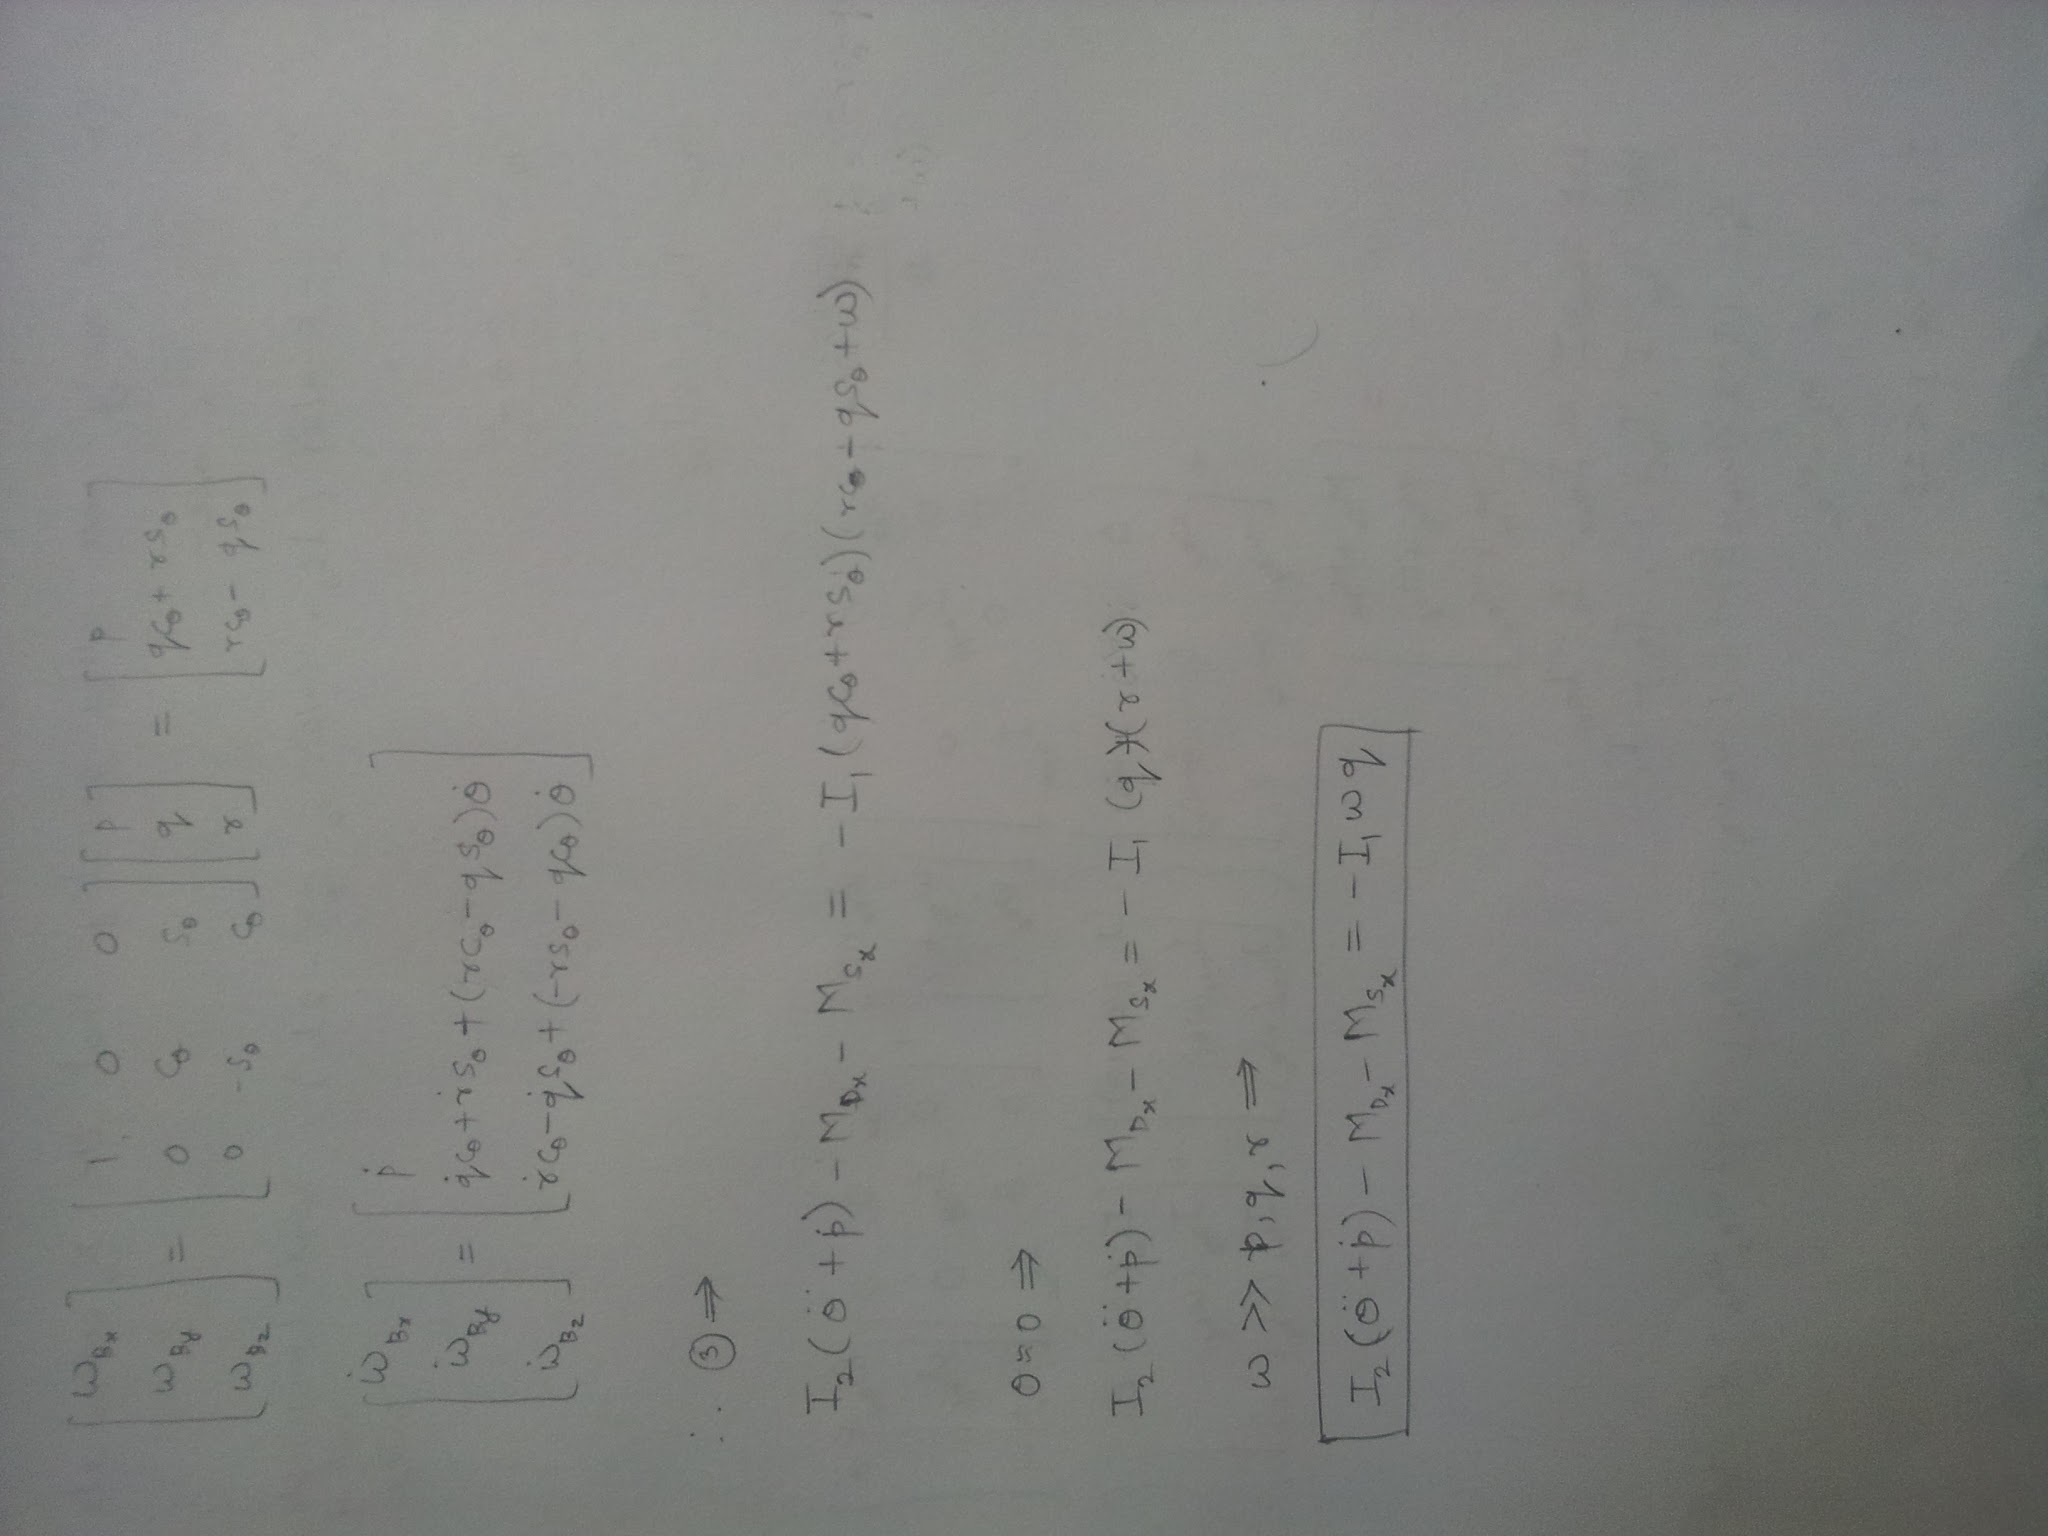 [ω_Bx ω_By ω_Bz] = [1 0 0; 0 c_θ s_θ; 0 -s_θ c_θ] [p q r] = [p; qc_θ + rs_θ; rc_θ - qs_θ]
[ω̇_Bx ω̇_By ω̇_Bz] = [ṗ; q̇c_θ + ṙs_θ + (rc_θ - qs_θ)θ̇; ṙc_θ - q̇s_θ + (-rs_θ - qc_θ)θ̇]
∴ ③ ⇒
I₂(θ̈ + ṗ) - M_Dx - M_Sx = -I₁(qc_θ + rs_θ)(rc_θ - qs_θ + ω)
θ ≈ 0 ⇒
I₂(θ̈ + ṗ) - M_Dx - M_Sx = -I₁(q)(r + ω)
ω >> p, q, r ⇒
I₂(θ̈ + ṗ) - M_Dx - M_Sx = -I₁ωq